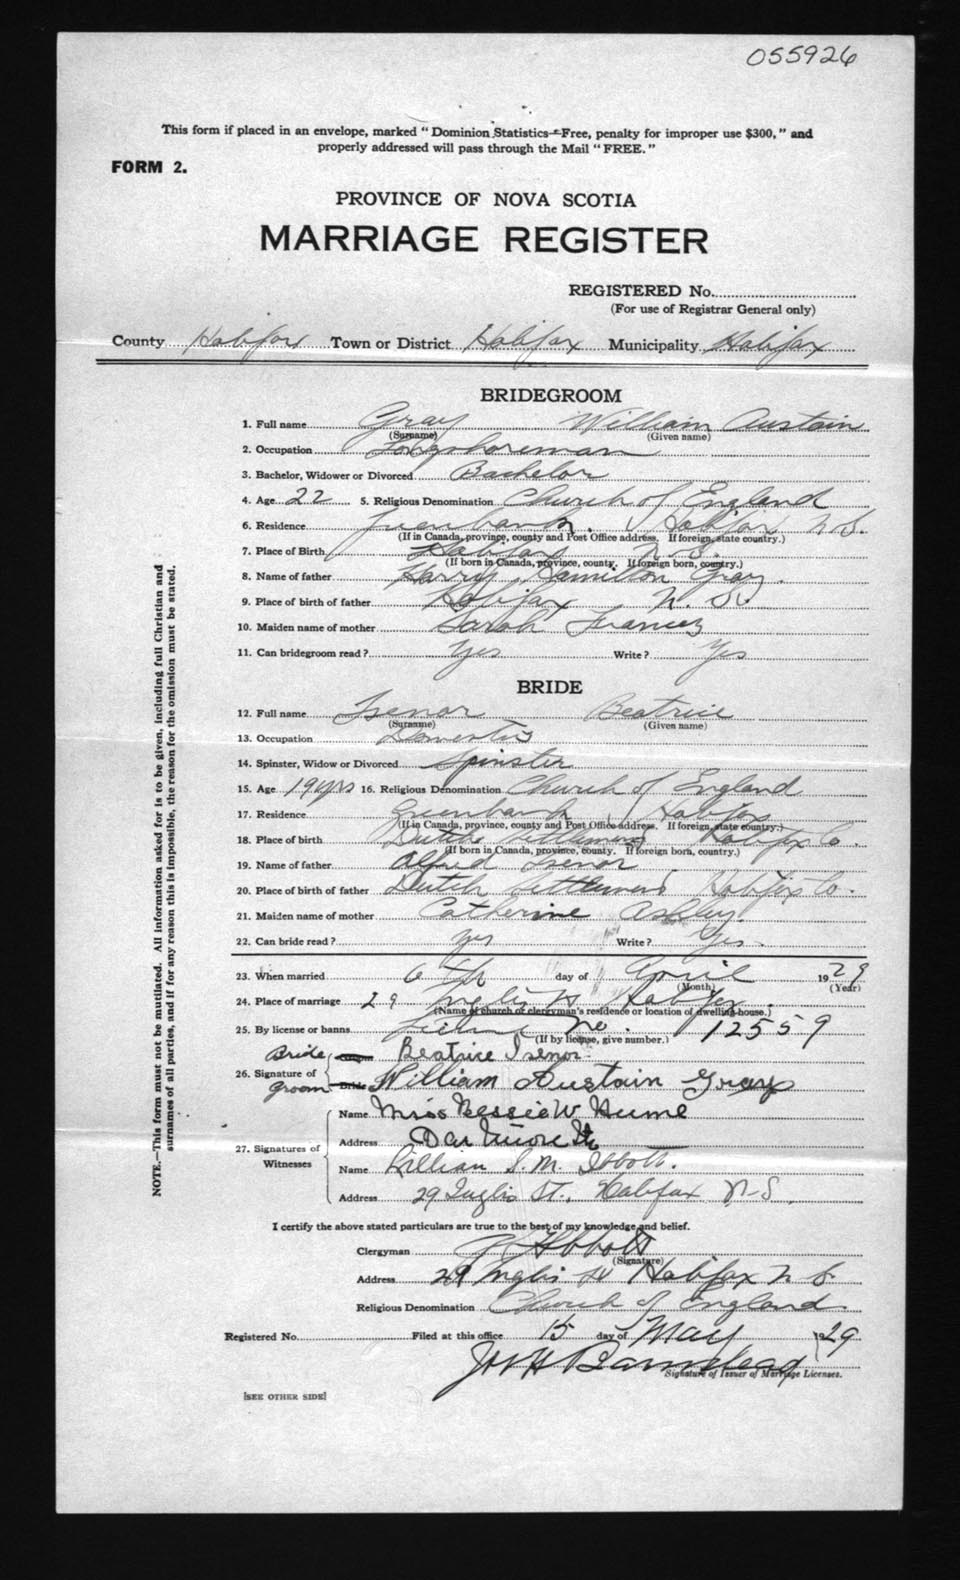 055926
This form if placed in an envelope, marked "Dominion Statistics—Free, penalty for improper use $300," and
properly addressed will pass through the Mail "FREE."
FORM 2.
PROVINCE OF NOVA SCOTIA
MARRIAGE REGISTER
REGISTERED No.
(For use of Registrar General only)
County Halifax Town or District Halifax Municipality Halifax
BRIDEGROOM
1. Full name Gray William Austain
(Surname) (Given name)
2. Occupation Longshoreman
3. Bachelor, Widower or Divorced Bachelor
4. Age 22 5. Religious Denomination Church of England
6. Residence Greenbank. Halifax N.S.
(If in Canada, province, county and Post Office address. If foreign, state country.)
7. Place of Birth Halifax N.S.
(If born in Canada, province, county. If foreign born, country.)
8. Name of father Harry Hamilton Gray.
9. Place of birth of father Halifax N. S.
10. Maiden name of mother Sarah Francis
11. Can bridegroom read? Yes Write? Yes
BRIDE
12. Full name Isenor Beatrice
(Surname) (Given name)
13. Occupation Domestic
14. Spinster, Widow or Divorced Spinster
15. Age 19 yrs 16. Religious Denomination Church of England
17. Residence Greenbank Halifax
(If in Canada, province, county and Post Office address. If foreign, state country.)
18. Place of birth Dutch Settlement Halifax Co.
(If born in Canada, province, county. If foreign born, country.)
19. Name of father Alfred Isenor
20. Place of birth of father Dutch Settlement Halifax Co.
21. Maiden name of mother Catherine Ashley.
22. Can bride read? Yes Write? Yes
23. When married 6th day of April 1929
(Month) (Year)
24. Place of marriage 29 Inglis St Halifax.
(Name of church or clergyman's residence or location of dwelling-house.)
25. By license or banns License No. 12559
(If by license, give number.)
Bride Beatrice Isenor
26. Signature of
Groom Bride William Austain Gray
Name Miss Bessie W Hume
Address
27. Signatures of
Witnesses
Name Lillian S. M. Ibbott.
Address 29 Inglis St., Halifax N.S.
I certify the above stated particulars are true to the best of my knowledge and belief.
Clergyman Ibbott
(Signature)
Address 29 Inglis St Halifax N S.
Religious Denomination Church of England
Registered No. Filed at this office 15 day of May 1929
Signature of Issuer of Marriage Licenses.
[SEE OTHER SIDE]
NOTE.—This form must not be mutilated. All information asked for is to be given, including full Christian and
surnames of all parties, and if for any reason this is impossible, the reason for the omission must be stated.